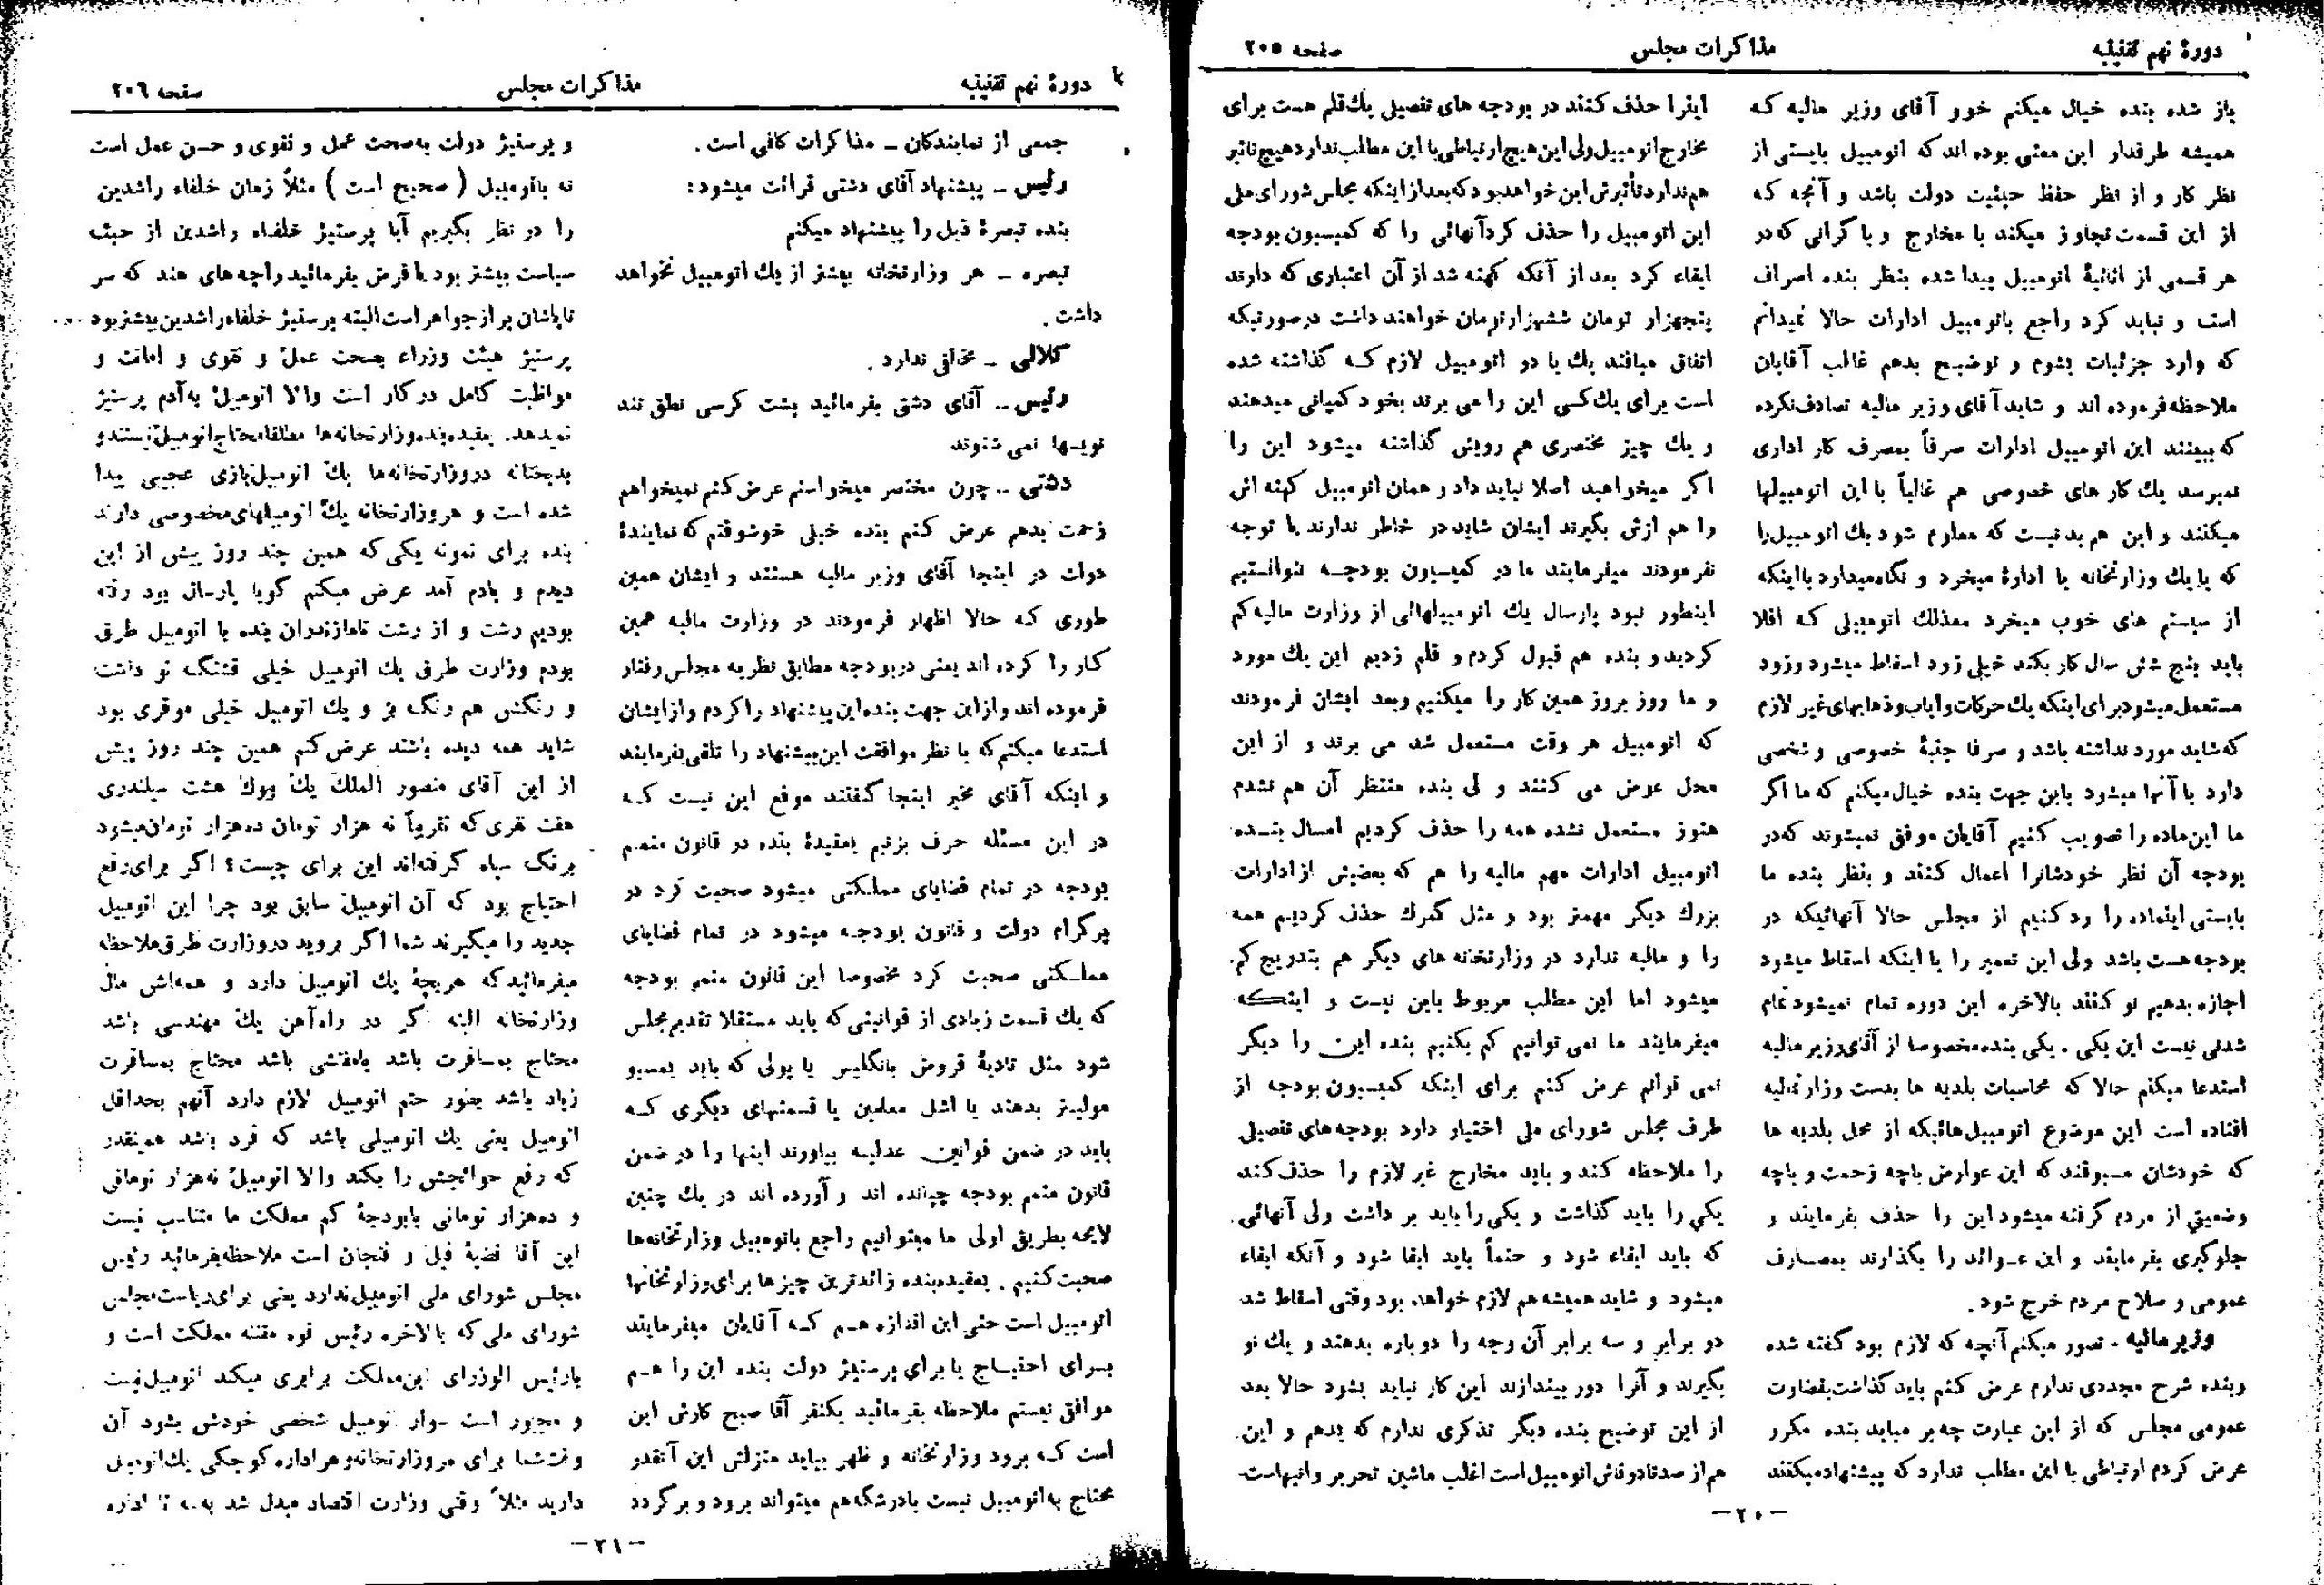 دورهٔ نهم تقنینیه
مذاکرات مجلس
صفحه ۲۰۵
باز شده بنده خیال میکنم خوو آقای وزیر مالیه که
همیشه طرفدار این معنی بوده اند که اتومبیل بایستی از
نظر کار و از نظر حفظ حیثیت دولت باشد و آنچه که
از این قسمت تجاوز میکند با مخارج و با گرانی که در
هر قسمی از اثاثیهٔ اتومبیل پیدا شده بنظر بنده اسراف
است و نباید کرد راجع باتومبیل ادارات حالا نمیدانم
که وارد جزئیات بشوم و توضیح بدهم غالب آقایان
ملاحظه فرموده اند و شاید آقای وزیر مالیه تصادف نکرده
که ببینند این اتومبیل ادارات صرفاً بمصرف کار اداری
نمیرسد یك کار های خصوصی هم غالباً با این اتومبیلها
میکنند و این هم بد نیست که معلوم شود یك اتومبیل را
که با یك وزارتخانه یا ادارهٔ میخرد و نگاه میدارد با اینکه
از سیستم های خوب میخرد معذلك اتومبیلی که اقلا
باید پنج شش سال کار بکند خیلی زود اسقاط میشود و زود
مستعمل میشود برای اینکه یك حرکات و ایاب و ذهابهای غیر لازم
که شاید مورد نداشته باشد و صرفا جنبهٔ خصوصی و شخصی
دارد با آنها میشود باین جهت بنده خیال میکنم که ما اگر
ما این ماده را تصویب کنیم آقایان موفق نمیشوند که در
بودجه آن نظر خودشانرا اعمال کنند و بنظر بنده ما
بایستی اینماده را رد کنیم از مجلس حالا آنهائیکه در
بودجه هست باشد ولی این تعمیر را با اینکه اسقاط میشود
اجازه بدهیم نو کنند بالاخره این دوره تمام نمیشود تمام
شدنی نیست این یکی . یکی بنده مخصوصا از آقای وزیر مالیه
استدعا میکنم حالا که محاسبات بلدیه ها بدست وزارتمالیه
افتاده است این موضوع اتومبیل هائیکه از محل بلدیه ها
که خودشان مسبوقند که این عوارض باچه زحمت و باچه
وضعیتی از مردم گرفته میشود این را حذف بفرمایند و
جلوگیری بفرمایند و این عـوائد را بگذارند بمصـارف
عمومی و صلاح مردم خرج شود .
وزیر مالیه - تصور میکنم آنچه که لازم بود گفته شده
وبنده شرح مجددی ندارم عرض کنم باید گذاشت بقضاوت
عمومی مجلس که از این عبارت چه بر میاید بنده مکرر
عرض کردم ارتباطی با این مطلب ندارد که پیشنهاد میکنند
اینرا حذف کنند در بودجه های تفصیلی یك قلم هست برای
مخارج اتومبیل ولی این هیچ ارتباطی با این مطلب ندارد هیچ تاثیر
هم ندارد تأثیرش این خواهد بود که بعد از اینکه مجلس شورای ملی
این اتومبیل را حذف کرد آنهائی را که کمیسیون بودجه
ابقاء کرد بعد از آنکه کهنه شد از آن اعتباری که دارند
پنجهزار تومان ششهزار تومان خواهند داشت در صورتیکه
اتفاق میافتد یك یا دو اتومبیل لازم که گذاشته شده
است برای یك کسی این را می برند بخود کمپانی میدهند
و یك چیز مختصری هم رویش گذاشته میشود این را
اگر میخواهید اصلا نباید داد و همان اتومبیل کهنه اش
را هم ازش بگیرند ایشان شاید در خاطر ندارند یا توجه
نفرمودند میفرمایند ما در کمیسیون بودجـه نتوانستیم
اینطور نبود پارسال یك اتومبیلهائی از وزارت مالیه کم
کردید و بنده هم قبول کردم و قلم زدیم این یك مورد
و ما روز بروز همین کار را میکنیم وبعد ایشان فرمودند
که اتومبیل هر وقت مستعمل شد می برند و از این
محل عوض می کنند و لی بنده منتظر آن هم نشدم
هنوز مستعمل نشده همه را حذف کردیم امسال بنـده
اتومبیل ادارات مهم مالیه را هم که بعضیش از ادارات
بزرك دیگر مهمتر بود و مثل گمرك حذف کردیم همه
را و مالیه ندارد در وزارتخانه های دیگر هم بتدریج کم
میشود اما این مطلب مربوط باین نیست و اینکه
میفرمایند ما نمی توانیم کم بکنیم بنده این را دیگر
نمی توانم عرض کنم برای اینکه کمیسیون بودجه از
طرف مجلس شورای ملی اختیار دارد بودجه های تفصیلی
را ملاحظه کند و باید مخارج غیر لازم را حذف کند
یکی را باید گذاشت و یکی را باید بر داشت ولی آنهائی
که باید ابقاء شود و حتماً باید ابقا شود و آنکه ابقاء
میشود و شاید همیشه هم لازم خواهد بود وقتی اسقاط شد
دو برابر و سه برابر آن وجه را دوباره بدهند و یك نو
بگیرند و آنرا دور بیندازند این کار نباید بشود حالا بعد
از این توضیح بنده دیگر تذکری ندارم که بدهم و این
هم از صد تا دو تاش اتومبیل است اغلب ماشین تحریر و اینهاست
-۲۰-
دورهٔ نهم تقنینیه
مذاکرات مجلس
صفحه ۲۰۶
جمعی از نمایندکان ـ مذاکرات کافی است .
رئیس ـ پیشنهاد آقای دشتی قرائت میشود:
بنده تبصرهٔ ذیل را پیشنهاد میکنم
تبصره ـ هر وزارتخانه بیشتر از یك اتومبیل نخواهد
داشت .
کلالی ـ مخالفی ندارد .
رئیس ـ آقای دشتی بفرمائید پشت کرسی نطق تند
نویسها نمی شنوند
دشتی ـ چون مختصر میخواستم عرض کنم نمیخواهم
زحمت بدهم عرض کنم بنده خیلی خوشوقتم که نمایندهٔ
دولت در اینجا آقای وزیر مالیه هستند و ایشان همین
طوری که حالا اظهار فرمودند در وزارت مالیه همین
کار را کرده اند یعنی در بودجه مطابق نظریه مجلس رفتار
فرموده اند و از این جهت بنده این پیشنهاد را کردم و از ایشان
استدعا میکنم که با نظر موافقت این پیشنهاد را تلقی بفرمایند
و اینکه آقای مخبر اینجا گفتند موقع این نیست کـه
در این مسئله حرف بزنیم بعقیدهٔ بنده در قانون متمم
بودجه در تمام قضایای مملکتی میشود صحبت کرد در
پرگرام دولت و قانون بودجـه میشود در تمام قضایای
مملـکتی صحبت کرد مخصوصا این قانون متمم بودجه
که یك قسمت زیادی از قوانینی که باید مستقلا تقدیم مجلس
شود مثل تادیهٔ قروض بانگلیس یا پولی که باید بمسیو
مولیتر بدهند یا اشل معلمین یا قسمتهای دیگری کـه
باید در ضمن قوانین عدلیه بیاورند اینها را در ضمن
قانون متمم بودجه چپانده اند و آورده اند در یك چنین
لایحه بطریق اولی ما میتوانیم راجع باتومبیل وزارتخانه ها
صحبت کنیم . بعقیده بنده زائدترین چیزها برای وزارتخانها
اتومبیل است حتی این اندازه هـم کـه آقایان میفرمایند
بـرای احتیـاج یا برای پرستیژ دولت بنده این را هـم
موافق نیستم ملاحظه بفرمائید یکنفر آقا صبح کارش این
است کـه برود وزارتخانه و ظهر بیاید منزلش این آنقدر
محتاج به اتومبیل نیست با درشکه هم میتواند برود و برگردد
و پرستیژ دولت به صحت عمل و تقوی و حسن عمل است
نه باتومبیل ( صحیح است ) مثلاً زمان خلفاء راشدین
را در نظر بگیریم آیا پرستیژ خلفاء راشدین از حیث
سیاست بیشتر بود یا فرض بفرمائید راجه های هند که سر
تا پاشان پر از جواهر است البته پرستیژ خلفاء راشدین بیشتر بود
پرستیژ هیئت وزراء بصحت عمل و تقوی و امانت و
مواظبت کامل در کار است والا اتومبیل به آدم پرستیژ
نمیدهد. بعقیده بنده وزارتخانه ها مطلقا محتاج اتومبیل نیستند و
بدبختانه در وزارتخانه ها یك اتومبیل بازی عجیبی پیدا
شده است و هر وزارتخانه یك اتومبیلهای مخصوصی دارند
بنده برای نمونه یکی که همین چند روز پیش از این
دیدم و یادم آمد عرض میکنم گویا پارسال بود رفته
بودیم رشت و از رشت تا مازندران بنده با اتومبیل طرق
بودم وزارت طرق یك اتومبیل خیلی قشنگ نو داشت
و رنگش هم رنگ بژ و یك اتومبیل خیلی موقری بود
شاید همه دیده باشند عرض کنم همین چند روز پیش
از این آقای منصور الملك یك بیوك هشت سیلندری
هفت نفری که تقریباً نه هزار تومان ده هزار تومان میشود
برنگ سیاه گرفته اند این برای چیست؟ اگر برای رفع
احتیاج بود که آن اتومبیل سابق بود چرا این اتومبیل
جدید را میگیرند شما اگر بروید در وزارت طرق ملاحظه
میفرمائید که هر بچهٔ یك اتومبیل دارد و همه اش مال
وزارتخانه البته اگر در راه آهن یك مهندسی باشد
محتاج بمسافرت باشد یا مفتشی باشد محتاج بمسافرت
زیاد باشد بطور حتم اتومبیل لازم دارد آنهم بحداقل
اتومبیل یعنی یك اتومبیلی باشد که فرد باشد همینقدر
که رفع حوائجش را بکند والا اتومبیل نه هزار تومانی
و ده هزار تومانی با بودجهٔ کم مملکت ما متناسب نیست
این آقا قضیهٔ فیل و فنجان است ملاحظه بفرمائید رئیس
مجلس شورای ملی اتومبیل ندارد یعنی برای ریاست مجلس
شورای ملی که بالاخره رئیس قوه مقننه مملکت است و
با رئیس الوزرای این مملکت برابری میکند اتومبیل نیست
و مجبور است سوار اتومبیل شخصی خودش بشود آن
وقت شما برای هر وزارتخانه و هر اداره کوچکی یك اتومبیل
دارید مثلاً وقتی وزارت اقتصاد مبدل شد به سه تا اداره
-۲۱-